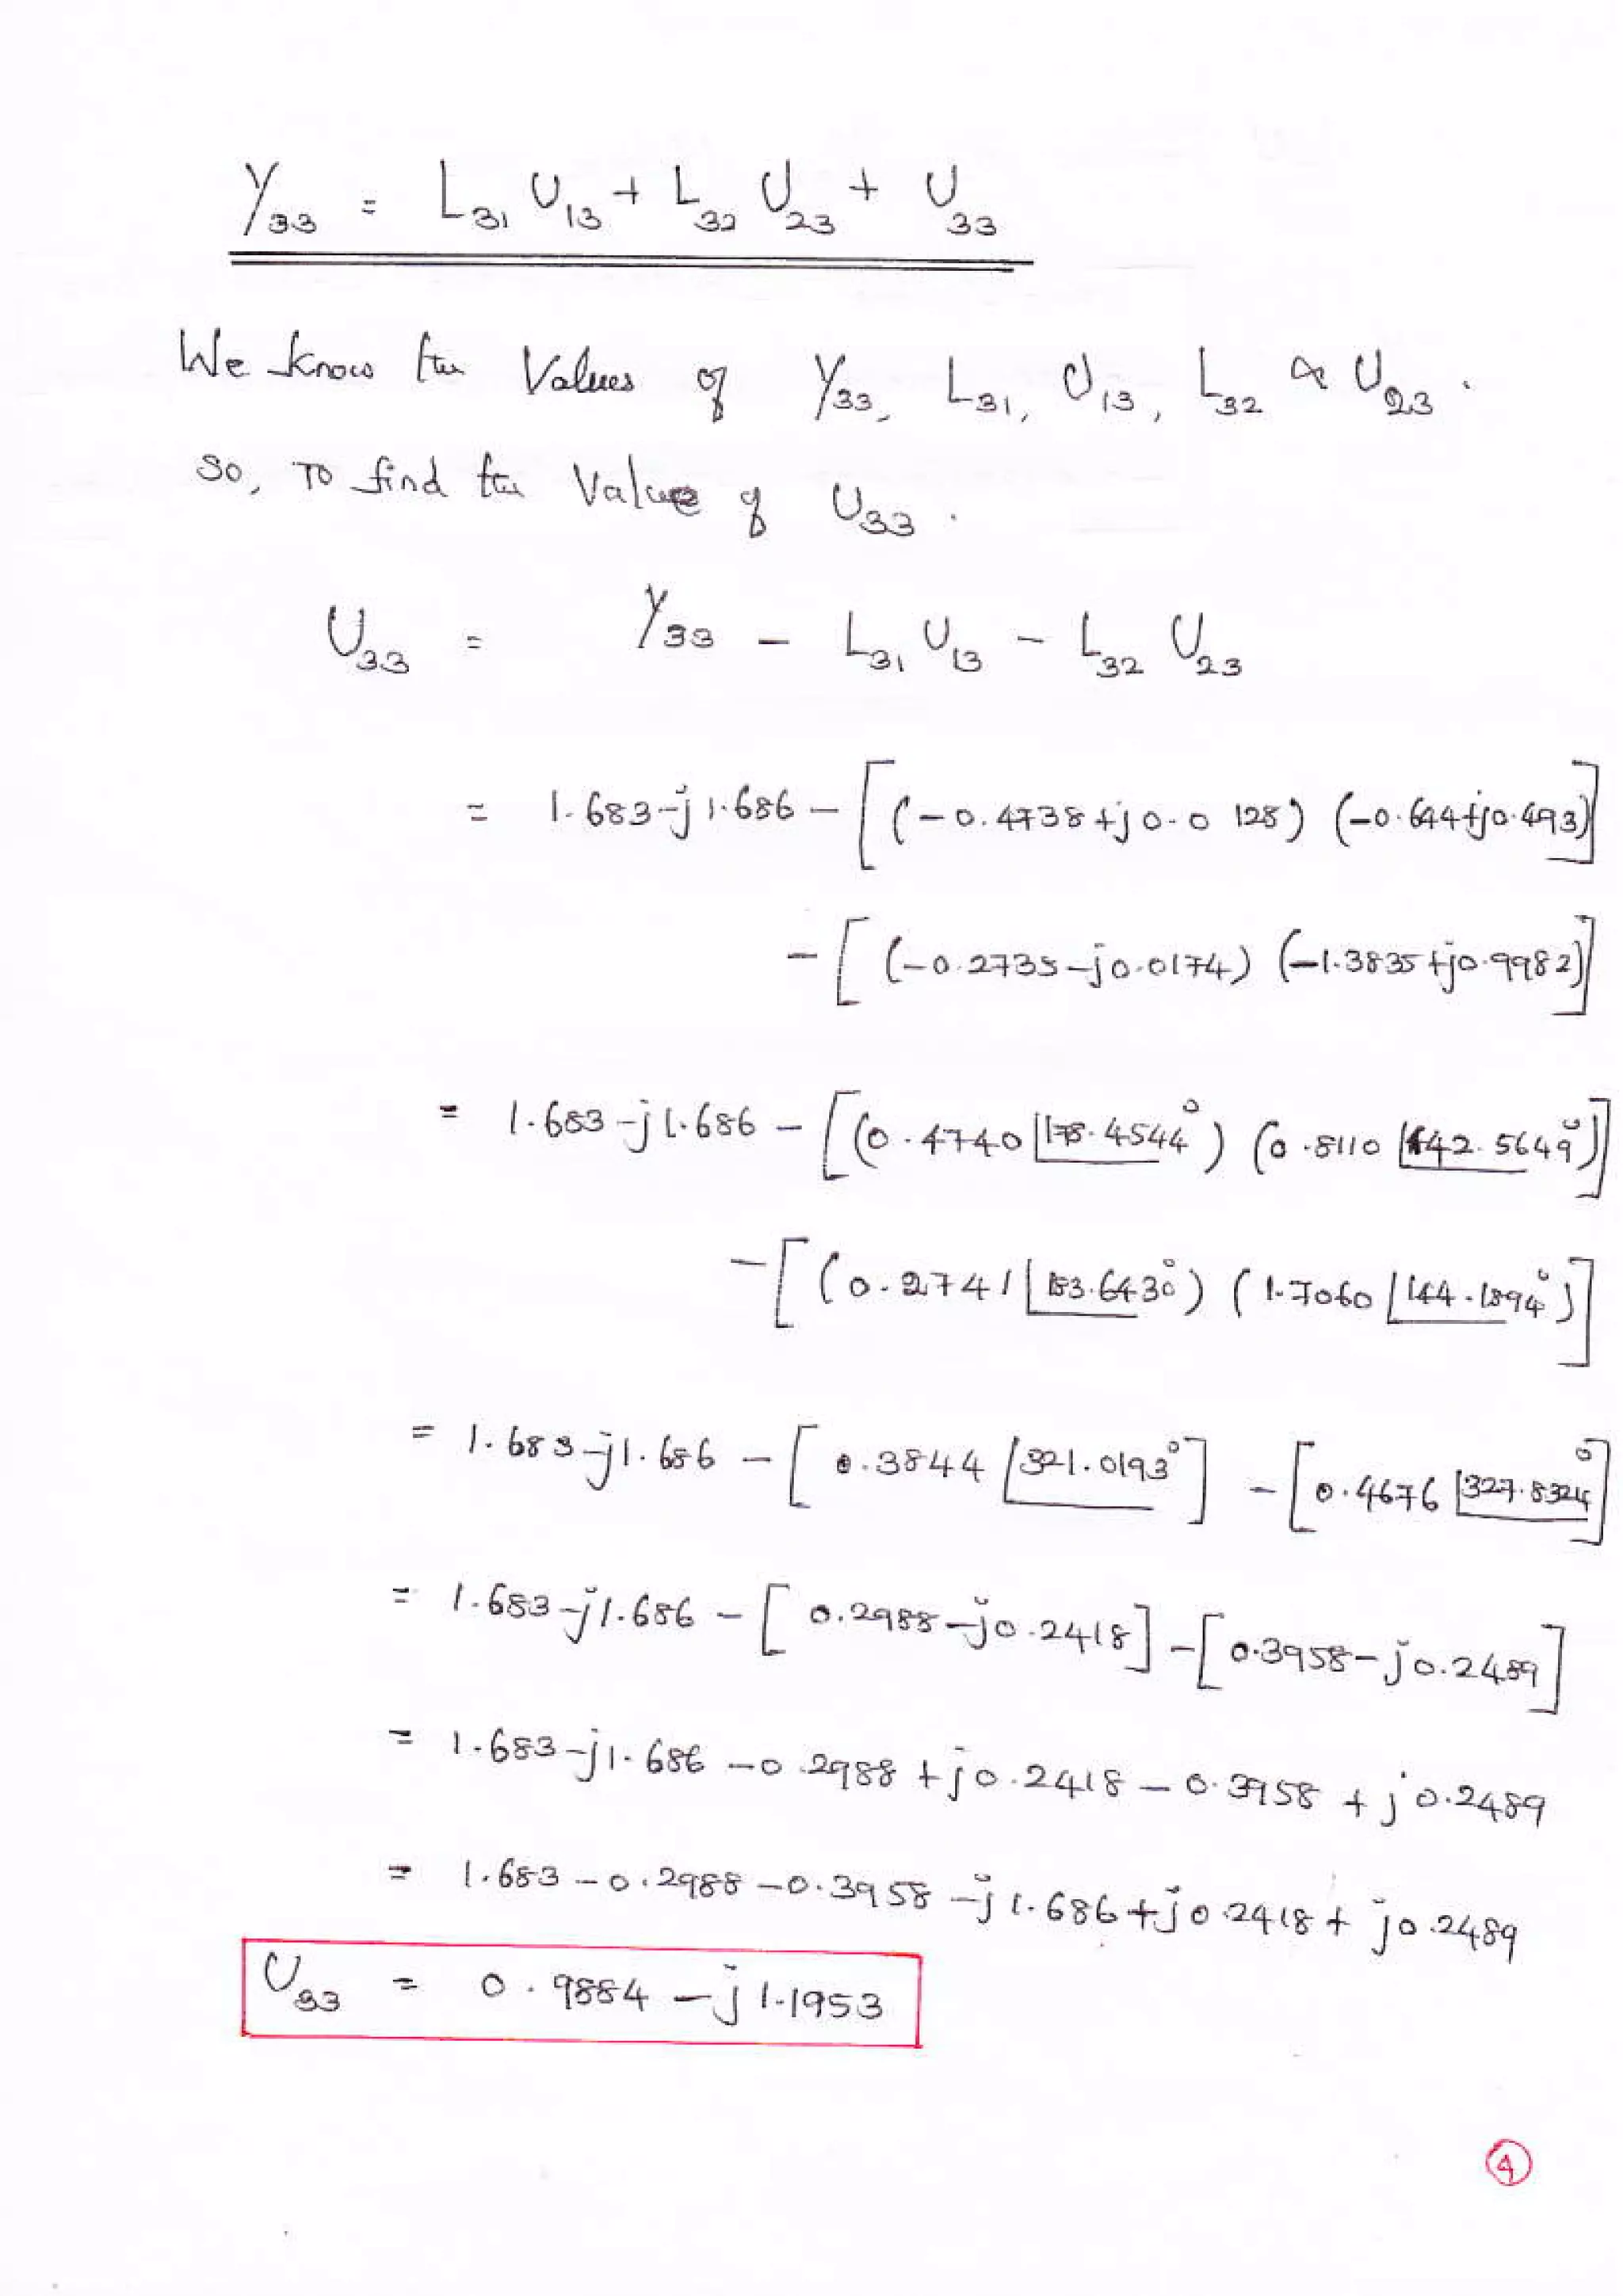 Y33 = L31 U13 + L32 U23 + U33
We know the Values of Y33, L31, U13, L32 & U23.
So, To find the Value of U33.
U33 = Y33 - L31 U13 - L32 U23
= 1.683-j1.686 - [(-0.4738+j0.0128) (-0.644+j0.493)]
- [(-0.2735-j0.0174) (-1.3835+j0.9982)]
= 1.683-j1.686 - [(0.4740∠178.4544°) (0.8110∠142.5649°)]
- [(0.2741∠183.6430°) (1.7060∠144.1894°)]
= 1.683-j1.686 - [0.3844∠321.0193°] - [0.4676∠327.8324°]
= 1.683-j1.686 - [0.2988-j0.2418] - [0.3958-j0.2489]
= 1.683-j1.686 -0.2988 +j0.2418 - 0.3958 + j0.2489
= 1.683 -0.2988 -0.3958 -j1.686 +j0.2418 + j0.2489
U33 = 0.9884 - j1.1953
4